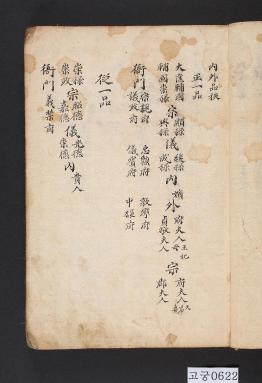 內外品秩
正一品
大匡輔國 宗 顯祿 儀 綏祿 內 嬪 外 府夫人 王妃母 宗 府夫人 大君妻
輔國崇祿 興祿 成祿 貞敬夫人 郡夫人
衙門 宗親府 忠勳府 敦寧府
議政府 儀賓府 中樞府
從一品
崇祿 宗 昭德 儀 光德 內 貴人
崇政 嘉德 崇德
衙門 義禁府
고궁0622